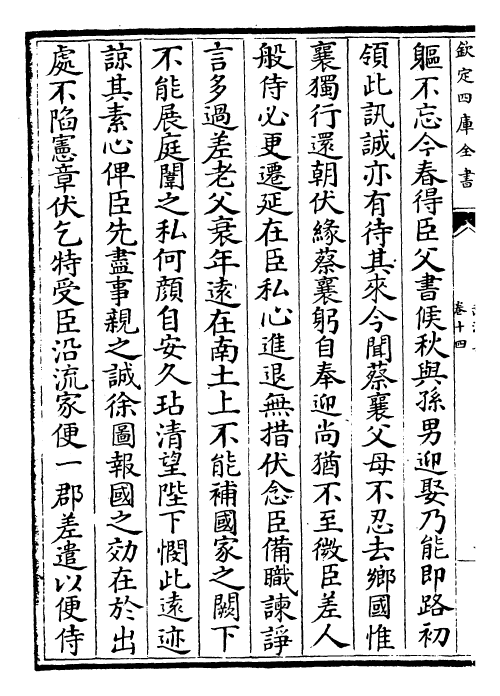 欽定四庫全書
卷十四
軀不忘今春得臣父書候秋與孫男迎娶乃能即路初
領此訊誠亦有待其來今聞蔡襄父母不忍去鄉國惟
襄獨行還朝伏緣蔡襄躬自奉迎尚猶不至微臣差人
般侍必更遷延在臣私心進退無措伏念臣備職諫諍
言多過差老父衰年遠在南土上不能補國家之闕下
不能展庭闈之私何顔自安久玷清望陛下憫此遠迹
諒其素心俾臣先盡事親之誠徐圖報國之効在於出
處不陷憲章伏乞特受臣沿流家便一郡差遣以便侍